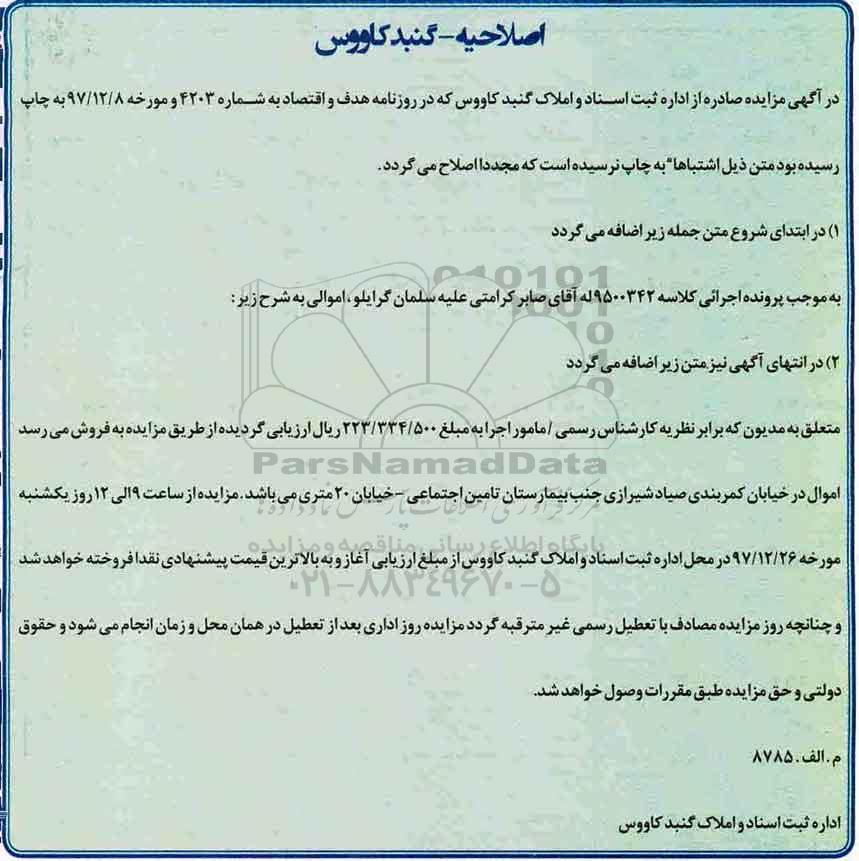 اصلاحیه - گنبد کاووس
در آگهی مزایده صادره از اداره ثبت اسناد و املاک گنبد کاووس که در روزنامه هدف و اقتصاد به شماره ۴۲۰۳ و مورخه ۹۷/۱۲/۸ به چاپ
رسیده بود متن ذیل اشتباها" به چاپ نرسیده است که مجددا اصلاح می گردد.
۱) در ابتدای شروع متن جمله زیر اضافه می گردد
به موجب پرونده اجرائی کلاسه ۹۵۰۰۳۴۲ له آقای صابر کرامتی علیه سلمان گرایلو ، اموالی به شرح زیر :
۲) در انتهای آگهی نیز متن زیر اضافه می گردد
متعلق به مدیون که برابر نظریه کارشناس رسمی / مامور اجرا به مبلغ ۲۲۳/۳۳۴/۵۰۰ ریال ارزیابی گردیده از طریق مزایده به فروش می رسد
ParsNamadData
اموال در خیابان کمربندی صیاد شیرازی جنب بیمارستان تامین اجتماعی - خیابان ۲۰ متری می باشد. مزایده از ساعت ۹ الی ۱۲ روز یکشنبه
مرکز فرآوری اطلاعات پارس نماد داده ها
پایگاه اطلاع رسانی مناقصه و مزایده
مورخه ۹۷/۱۲/۲۶ در محل اداره ثبت اسناد و املاک گنبد کاووس از مبلغ ارزیابی آغاز و به بالاترین قیمت پیشنهادی نقدا فروخته خواهد شد
۰۲۱-۸۸۳۴۹۶۷۰-۵
و چنانچه روز مزایده مصادف با تعطیل رسمی غیر مترقبه گردد مزایده روز اداری بعد از تعطیل در همان محل و زمان انجام می شود و حقوق
دولتی و حق مزایده طبق مقررات وصول خواهد شد.
م . الف . ۸۷۸۵
اداره ثبت اسناد و املاک گنبد کاووس